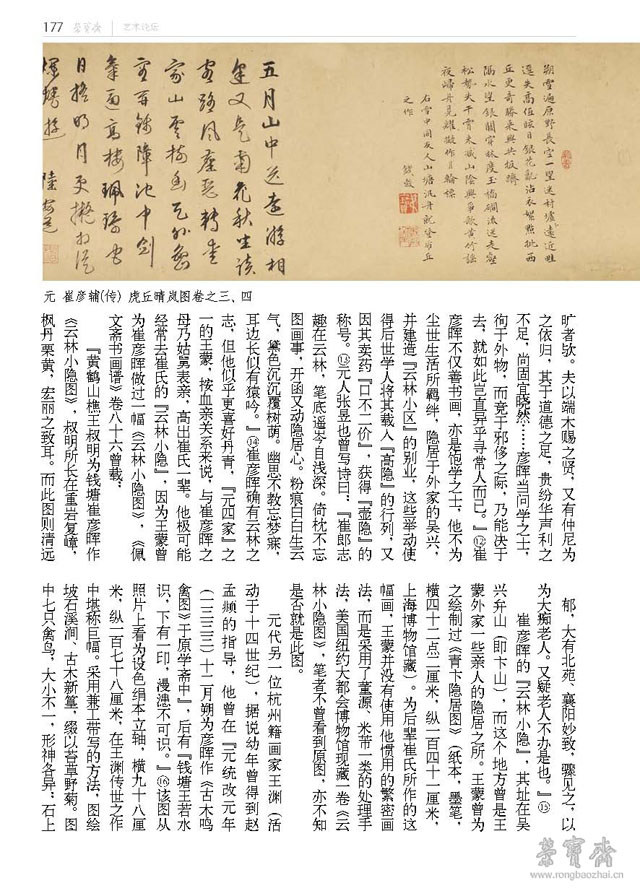 177 荣宝斋 艺术论坛
朔雪遍原野长空一望迷村墟远近
五月山中送远游相
家山
日拾明月更
之作
钱毂
元 崔彦辅(传) 虎丘晴岚图卷之三、四
旷者欤。夫以端木赐之贤，又有仲尼为
之依归，其于道德之足，贵纷华声利之
不足，尚固宜晓然……彦晖当问学之士，
徇于外物，而竟于邪侈之际，乃能决于
去，就如此岂直异乎寻常人而已。』⑫崔
彦晖不仅善书画，亦是饱学之士，他不为
尘世生活所羁绊，隐居于外家的吴兴，
并建造『云林小区』的别业，这些举动使
得后世学人将其载入『高隐』的行列，又
因其卖药『口不二价』，获得『壶隐』的
称号。⑬元人张昱也曾写诗曰，『崔郎志
趣在云林，笔底遥岑自浅深。倚枕不忘
图画事，开函又动隐居心。粉痕白白生云
气，黛色沉沉覆树荫。幽思不教忘梦寐，
耳边长似有猿吟。』⑭崔彦晖确有云林之
志，但他似乎更喜好丹青，『元四家』之
一的王蒙，按血亲关系来说，与崔彦晖之
母乃姑舅表亲，高出崔氏一辈。他极可能
经常去崔氏的『云林小隐』，因为王蒙曾
为崔彦晖做过一幅《云林小隐图》，《佩
文斋书画谱》卷八十六曾载：
『黄鹤山樵王叔明为钱塘崔彦晖作
《云林小隐图》，叔明所长在重岩复嶂，
枫丹栗黄，宏丽之致耳。而此图则清远
郁，大有北苑、襄阳妙致，骤见之，以
为大痴老人。又疑老人不办是也。』⑮
崔彦晖的『云林小隐』，其址在吴
兴弁山（即卞山），而这个地方曾是王
蒙外家一些亲人的隐居之所。王蒙曾为
之绘制过《青卞隐居图》（纸本，墨笔，
横四十二点二厘米，纵一百四十一厘米，
上海博物馆藏）。为后辈崔氏所作的这
幅画，王蒙并没有使用他惯用的繁密画
法，而是采用了董源、米芾一类的处理手
法，美国纽约大都会博物馆现藏一卷《云
林小隐图》，笔者不曾看到原图，亦不知
是否就是此图。
元代另一位杭州籍画家王渊（活
动于十四世纪），据说幼年曾得到赵
孟頫的指导，他曾在『元统改元年
（一三三三）十二月朔为彦晖作《古木鸣
禽图》于原学斋中』，后有『钱塘王若水
识，下有一印，漫漶不可识。』⑯该图从
照片上看为设色绢本立轴，横九十八厘
米，纵一百七十八厘米，在王渊传世之作
中堪称巨幅。采用兼工带写的方法，图绘
坡石溪涧、古木新篁，缀以苍草野菊。图
中七只禽鸟，大小不一，形神各异：石上
荣宝斋
www.rongbaozhai.cn